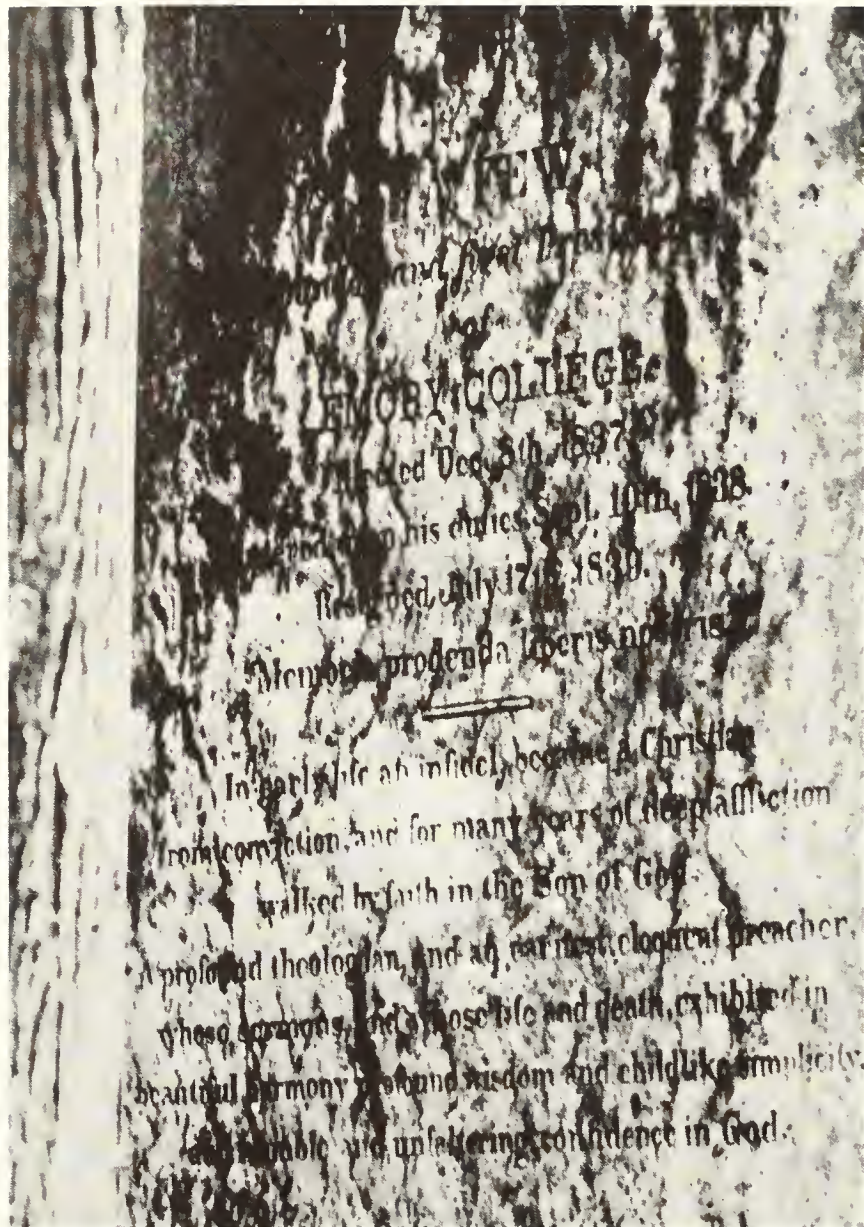 FEW
and first President
of
EMORY COLLEGE.
Elected Dec. 8th, 1837.
his duties Sept. 10th, 1838.
Resigned July 17th, 1839.
Memoria prodenda liberis nostris.
In early life an infidel, became a Christian
from conviction, and for many years of deep affliction
walked by faith in the Son of God.
A profound theologian, and an earnest, eloquent preacher,
whose sermons, and whose life and death, exhibited in
beautiful harmony profound wisdom and childlike simplicity,
and humble and unfaltering confidence in God.